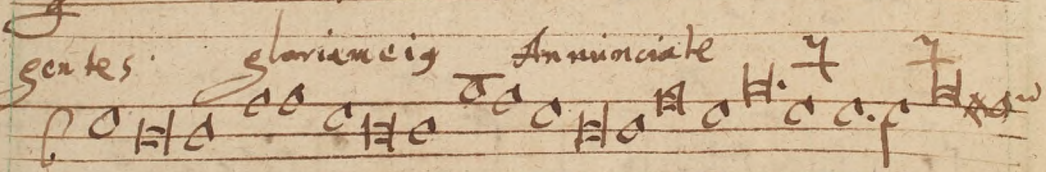 gentes gloriam eiꝰ Annunciate